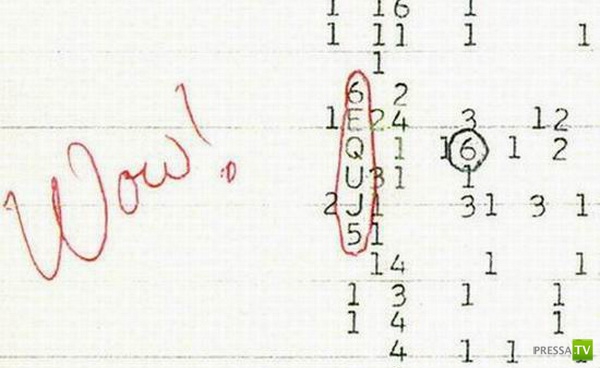 1 16 1
1 11 1 1
1
6 2
1 E 24 3 12
Wow!
Q 1 16 1 2
U 31 1
2 J 1 31 3 1
5 1
14 1 1
1 3 1 1
1 4 1
4 1 1
PRESSA.TV